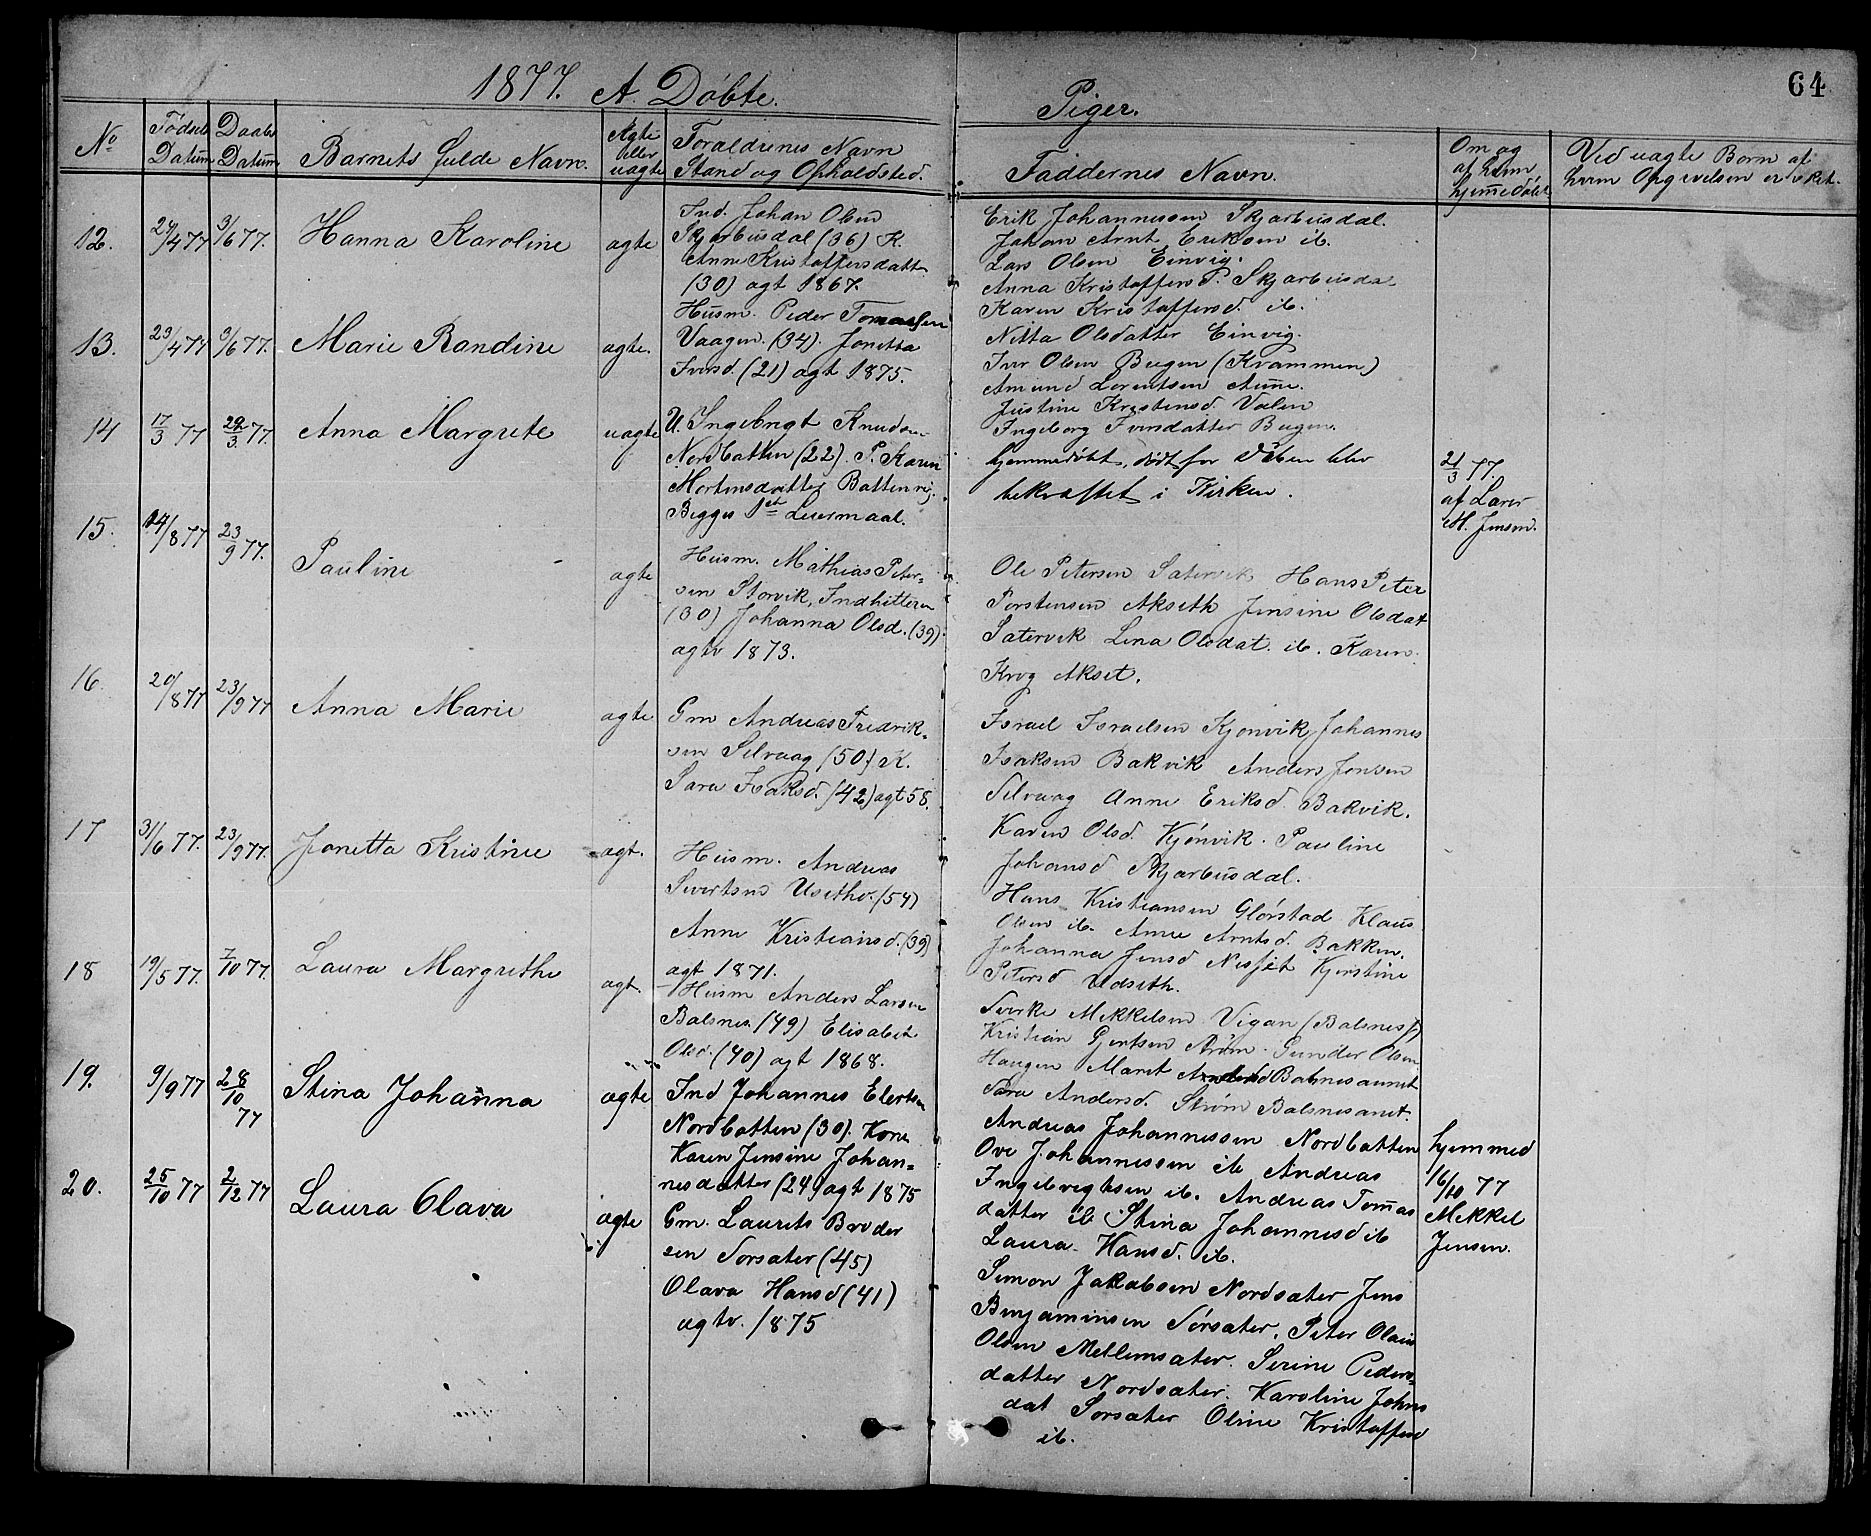 64
1877. A. Döbte. Piger.
No
Födsels Datum
Daabs Datum
Barnets fulde Navn.
Ægte eller uagte
Foraldrenes Navn
Stand og Opholdsted.
Faddernes Navn.
Om og af hvem hjemmedöbt
Ved uagte Born af
hvem Opgivelsen er
12. 24/4 77 3/6 77. Hanna Karoline agte
Ind. Johan Olsen
Skjarbusdal (36) K.
Anne Kristoffersdatter
(30) agt 1867.
Erik Johannessen Skjarbusdal.
Johan Arnt Eriksen ib.
Lars Olsen Einvig.
Anna Kristoffersd. Skjarbusdal
Karen Kristoffersd. ib.
Nitta Olsdatter Einvig.
13. 23/4 77 3/6 77. Marie Randine agte.
Husm. Peder Tomassen
Vaagen. (34). Jonetta
Iversd. (21) agt 1875.
Iver Olsen Bugen (Kvammen)
Amund Lorentsen Aune.
Justine Kristensd. Valen
Ingeborg Iversdatter Bugen.
14 17/3 77 29/3 77. Anna Margrete uagte
U. Ingebrigt Knudsen
Nordbotten (22). P. Karen
Mortensdatter Battenvig.
Begges 1st Leiermaal.
hjemmedöbt, dödt för Daaben blev
bekraftet i Kirken.
21/3 77.
af Larer
M. Jensen.
15. 14/8 77 23/9 77. Pauline agte
Husm. Mathias Peter-
sen Storvik, Indhitteren
(30) Johanna Olsd. (39).
agtv 1873.
Ole Petersen Satervik Hans Peter
Torstensen Akseth Jensine Olsdat
Satervik Lina Olsdat. ib. Karen
Krog Akset.
16. 20/8 77 23/9 77 Anna Marie agte
Gm Andreas Fredrik-
sen Selvaag (50) K.
Sara Isaksd. (42) agt 58.
Israel Israelsen Kjonvik Johannes
Isaksen Bakvik Anders Jensen
Selvaag Anne Eriksd Bakvik.
Karen Olsd. Kjönvik. Pauline
Johansd Skjarbusdal.
17 31/6 77. 23/9 77. Jonetta Kristine agt.
Husm. Andreas
Sivertsen Usethv. (54)
Anne Kristiansd. (39)
agt 1871.
Hans Kristiansen Glörstad Klaus
Olsen ib. Anne Arntsd. Bakken.
Johanna Jensd Nesset Kjerstine
Petersd Udseth.
18 19/5 77. 7/10 77. Laura Margrethe agt.
Husm Anders Larsen
Balsnes. (49) Elisabet
Olsd. (40) agt 1868.
Sverke Mikkelsen Vigan (Balsnes)
Kristian Gjertsen Ström. Gunder Olsen
Haugen Maret Andersd Balsnesaunet
Sara Andersd. Ström Balsnesaunet.
19. 9/9 77 28/10 77 Stina Johanna agte
Ind Johannes Elertsen
Nordbotten (30). Kone
Karen Jensine Johan-
nesdatter (24) agt 1875
Andreas Johannessen Nordbotten
Ove Johannessen ib Andreas
Ingebrigtsen ib. Andreas Tomas
datter ib Stina Johannesd ib
Laura Hansd. ib.
hjemmed
16/10 77
Mikkel
Jensen.
20. 25/10 77 2/12 77 Laura Olava agte
Gm. Laurits Broder
sen Sorsater (45)
Olava Hansd (41)
agtv. 1875
Simon Jakobsen Nordsater Jens
Benjaminsen Sörsater. Peter Olaus
Olsen Mellemsater. Serine Peders-
datter Nordsater. Karoline Johns
dat Sorsater Oline Kristoffersd
ib.